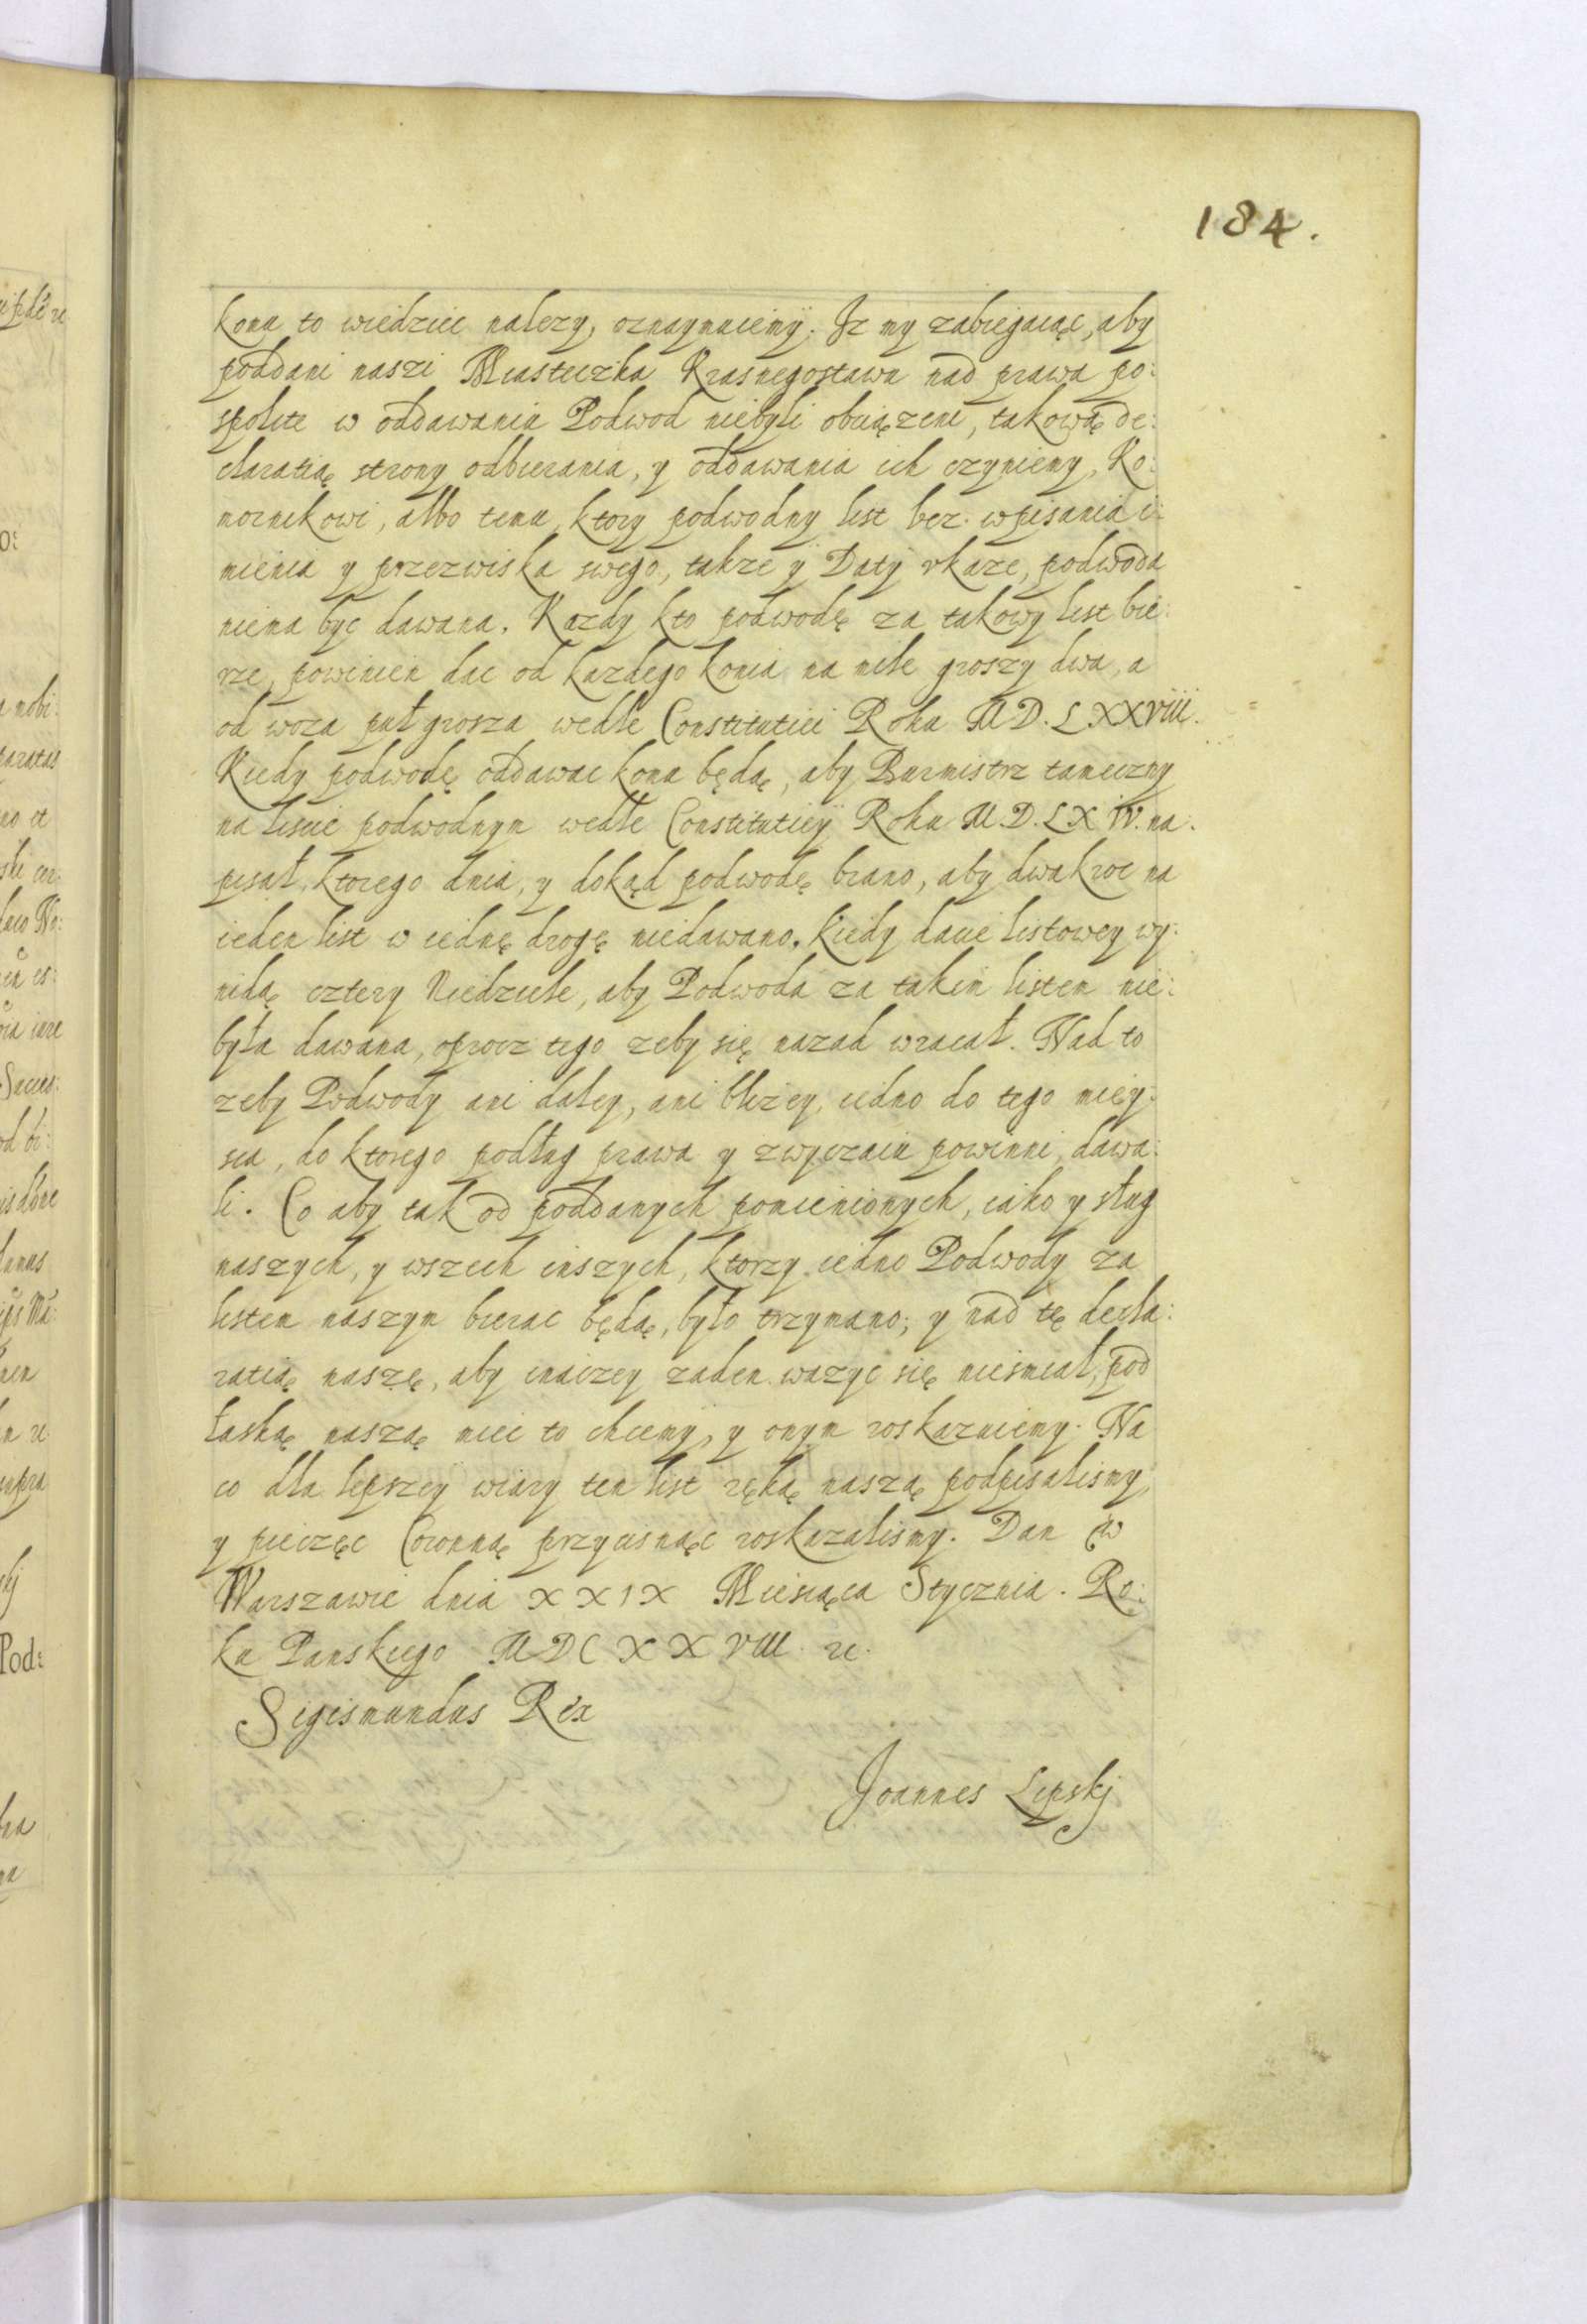 184.
komu to wiedziec nalezy, oznaymuiemÿ. Iz my zabiegaiąc, aby
poddani naszi Miasteczka Krasnegostawu nad prawa po:
spolite w oddawaniu Podwod niebyli obciązeni, takowąde:
claratią strony odbierania, y oddawania ich czyniemy. Ko:
mornikowi, albo temu, ktory podwodny list bez wpisania i:
mienia y przezwiska swego, takze ÿ Datÿ vkaze, podwoda
niema byc dawana. Kazdy kto podwodę za takowy list bie:
rze, powinien dac od kazdego konia na mile groszy dwa, a
od woza puł grosza wedle Constitutiei Roku MD.LXXVIII.
Kiedy podwodę oddawac komu będą, aby Burmistrz tameczny
na liscie podwodnym wedle Constitutieÿ Roku M.D.LXIV. na.
pisał, ktorego dnia, y dokąd podwodę brano, aby dwakroc na
ieden list w iednę drogę niedawano. Kiedy dacie listowey wy:
nidą cztery Niedziele, aby Podwoda za takim listem nie:
była dawana, oprocz tego zeby się nazad wracał. Nad to
zeby Podwody ani daley, ani blizey, iedno do tego miey:
sca, do ktorego podług prawa y zwyczaiu powinni, dawa:
li. Co aby tak od poddanych pomienionych, iako y sług
naszych, y wszech inszych, ktorzy iedno Podwody za
listem naszym bierac będą, było trzymano; y nad tę decla:
ratią naszę, aby inaczey zaden wazyc się niesmiał, pod
łaską naszą miec to chcemÿ, y onym roskazuiemy. Na
co dla lepszeÿ wiary ten list ręką naszą podpisalismy,
y pieczęc Coronną przycisnąc roskazalismy. Dan w
Warszawie dnia XXIX Miesiąca Stycznia. Ro:
ku Panskiego MDCXXVIII. etc.
Sigismundus Rex
Joannes Lipskj